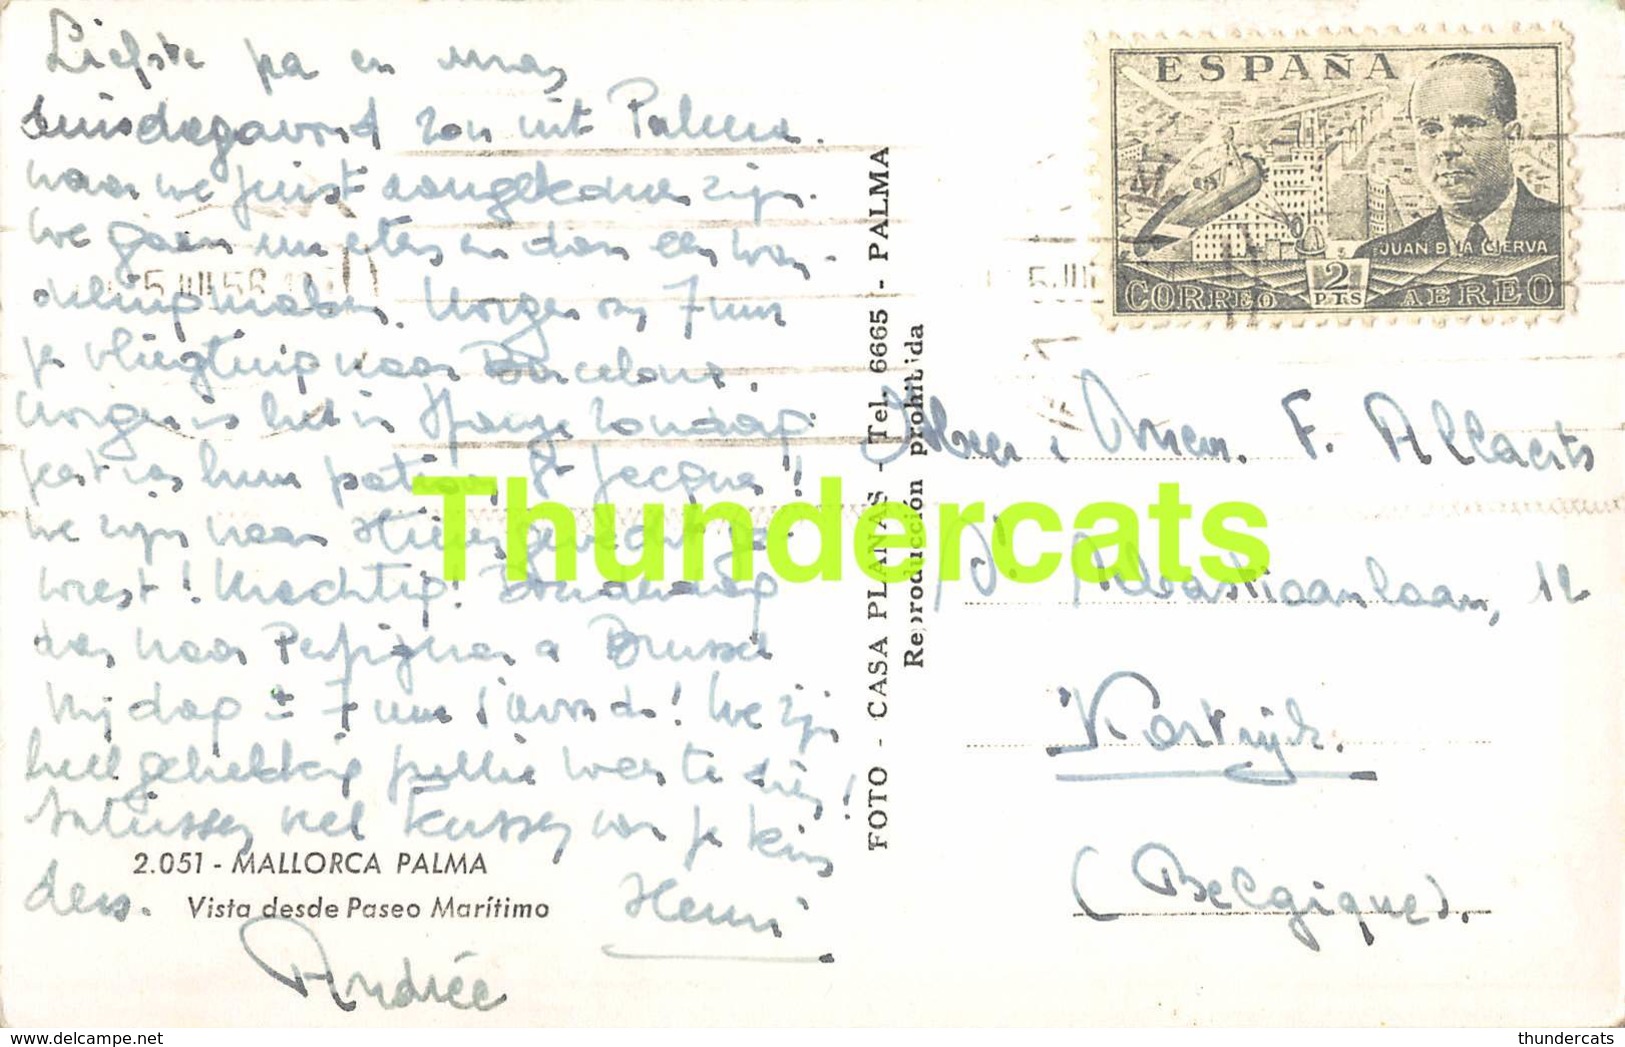 Liefste pa en mas
dinsdagavond zon uit Palma.
waar we juist aangekomen zijn.
We gaan nu eten en dan een wan-
deling maken. Morgen om 7 uur
per vliegtuig naar Barcelona.
Morgen is het in Spanje zondag
feest van hun patroon St Jacques!!
We zijn naar Stierengevecht ge-
weest! Machtig! Donderdag
dan naar Perpignan à Brussel
Vrijdag ± 7 uur 's avonds! We zijn
heel gelukkig jullie weer te zien!
Intussen veel kussen van je kin
ders. Henri
Andrée
2.051 - MALLORCA PALMA
Vista desde Paseo Marítimo
FOTO - CASA PLANAS - Tel. 6665 - PALMA
Reproducción prohibida
ESPAÑA
JUAN D LA CIERVA
2 PTS
CORREO AEREO
5 JUL 56
Mr. & Mme. F. Allaerts
St Sebastiaanlaan, 12
Kortrijk.
(Belgique).
Thundercats
www.delcampe.net
thundercats